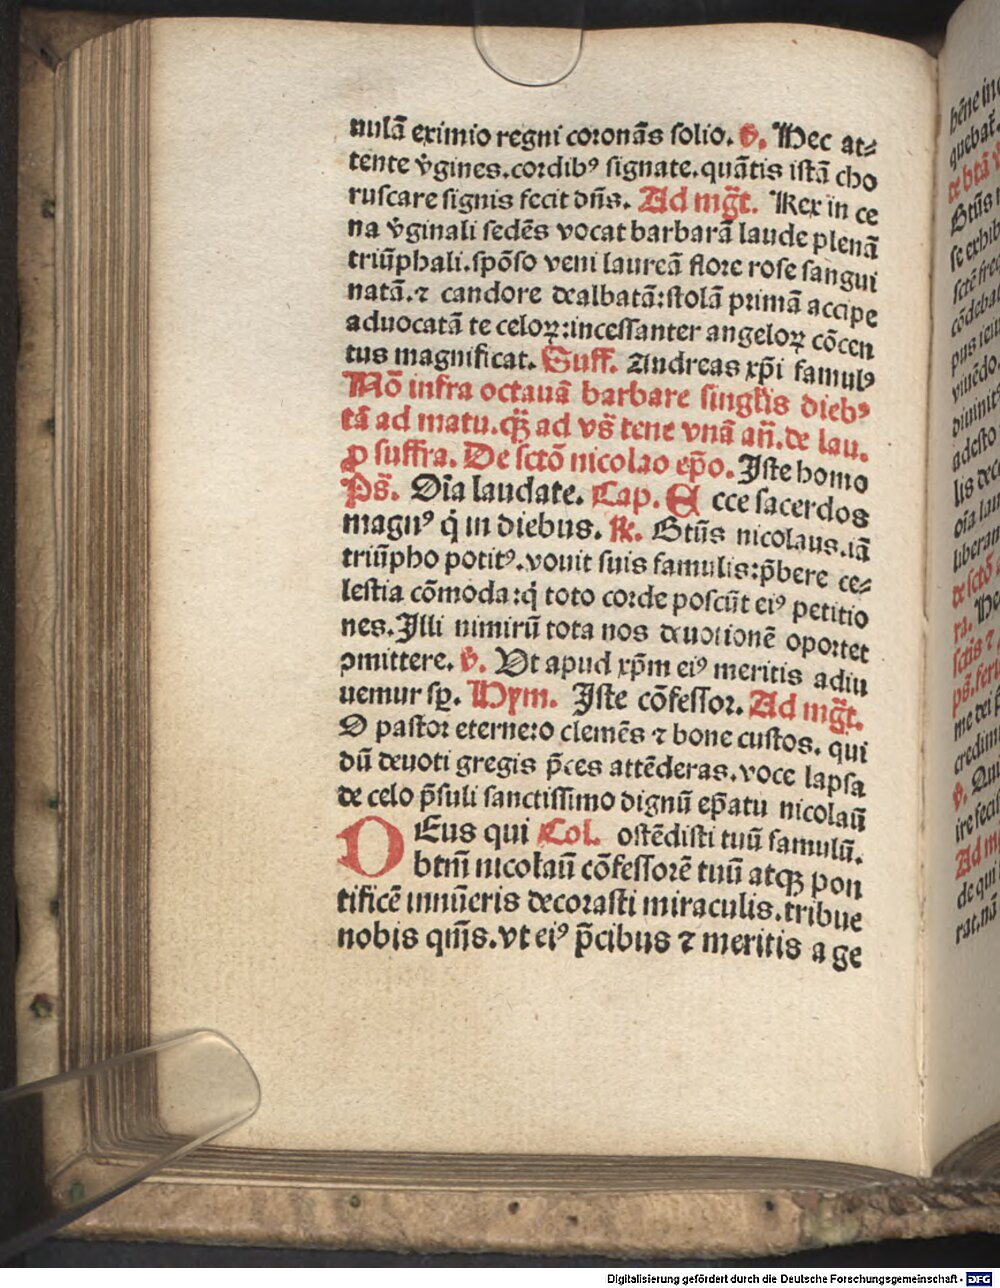 nulã eximio regni coronãs solio. ꝟ. Hec at⸗
tente ꝟgines.cordibꝰ signate.quãtis istã cho
ruscare signis fecit dñs. Ad mg̃t. Rex in ce
na ꝟginali sedẽs vocat barbarã laude plenã
triũphali.spõso veni laureã flore rose sangui
natã.⁊ candore dealbatã:stolã primã accipe
aduocatã te celoꝝ:incessanter angeloꝝ cõcen
tus magnificat. Suff. Andreas xp̃i famulꝰ
Nõ infra octauã barbare singĺis diebꝰ
tã ad matu.qꝫ̃ ad vs̃ tene vnã añ.de lau.
ꝓ suffra. De sctõ nicolao ep̃o. Iste homo
Ps̃. Oĩa laudate. Cap. Ecce sacerdos
magnꝰ q̇ in diebus. ꝶ. Btũs nicolaus.iã
triũpho potitꝰ.nouit suis famulis:p̃bere ce⸗
lestia cõmoda:q̇ toto corde poscũt eiꝰ petitio
nes.Illi nimirũ tota nos deuotionẽ oportet
ꝓmittere. ꝟ. Vt apud xp̃m eiꝰ meritis adiu
uemur sꝑ. Hym. Iste cõfessor. Ad mg̃t.
O pastor eterne:o clemẽs ⁊ bone custos. qui
dũ deuoti gregis p̃ces attẽderas.voce lapsa
de celo p̃suli sanctissimo dignũ ep̃atu nicolaũ
DEus qui Col. ostẽdisti tuũ famulũ.
btm̃ nicolaũ cõfessorẽ tuũ atqꝫ pon
tificẽ innũeris decorasti miraculis.tribue
nobis qm̃s.vt eiꝰ p̃cibus ⁊ meritis a ge
bẽne in
quebat̃.
de btã ꝟ
Btũs
se exhib
sctẽ fre
cõdebat
diuinit
adesto
lis dec
oĩa lau
liberan
de sctõ
ra. Hec
sctis ⁊
ps̃.feri
me dei
credim
ꝟ. Qui
Ad m
de qui
rat.nã
Digitalisierung gefördert durch die Deutsche Forschungsgemeinschaft - DFG